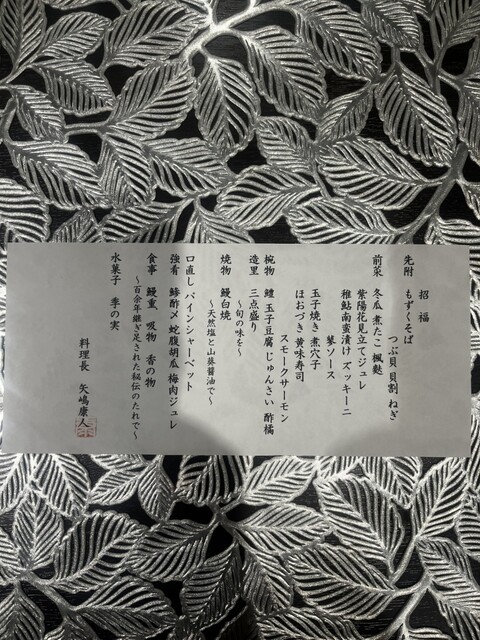 招福
先附 もずくそば
つぶ貝 貝割 ねぎ
前菜 冬瓜 煮たこ 楓麩
紫陽花見立てジュレ
稚鮎南蛮漬け ズッキーニ
蓼ソース
玉子焼き 煮穴子
ほおづき 黄味寿司
スモークサーモン
椀物 鱧 玉子豆腐 じゅんさい 酢橘
造里 三点盛り
～旬の味を～
焼物 鰻白焼
～天然塩と山葵醤油で～
口直し パインシャーベット
強肴 鯵酢〆 蛇腹胡瓜 梅肉ジュレ
食事 鰻重 吸物 香の物
～百余年継ぎ足された秘伝のたれで～
水菓子 季の実
料理長 矢嶋康人